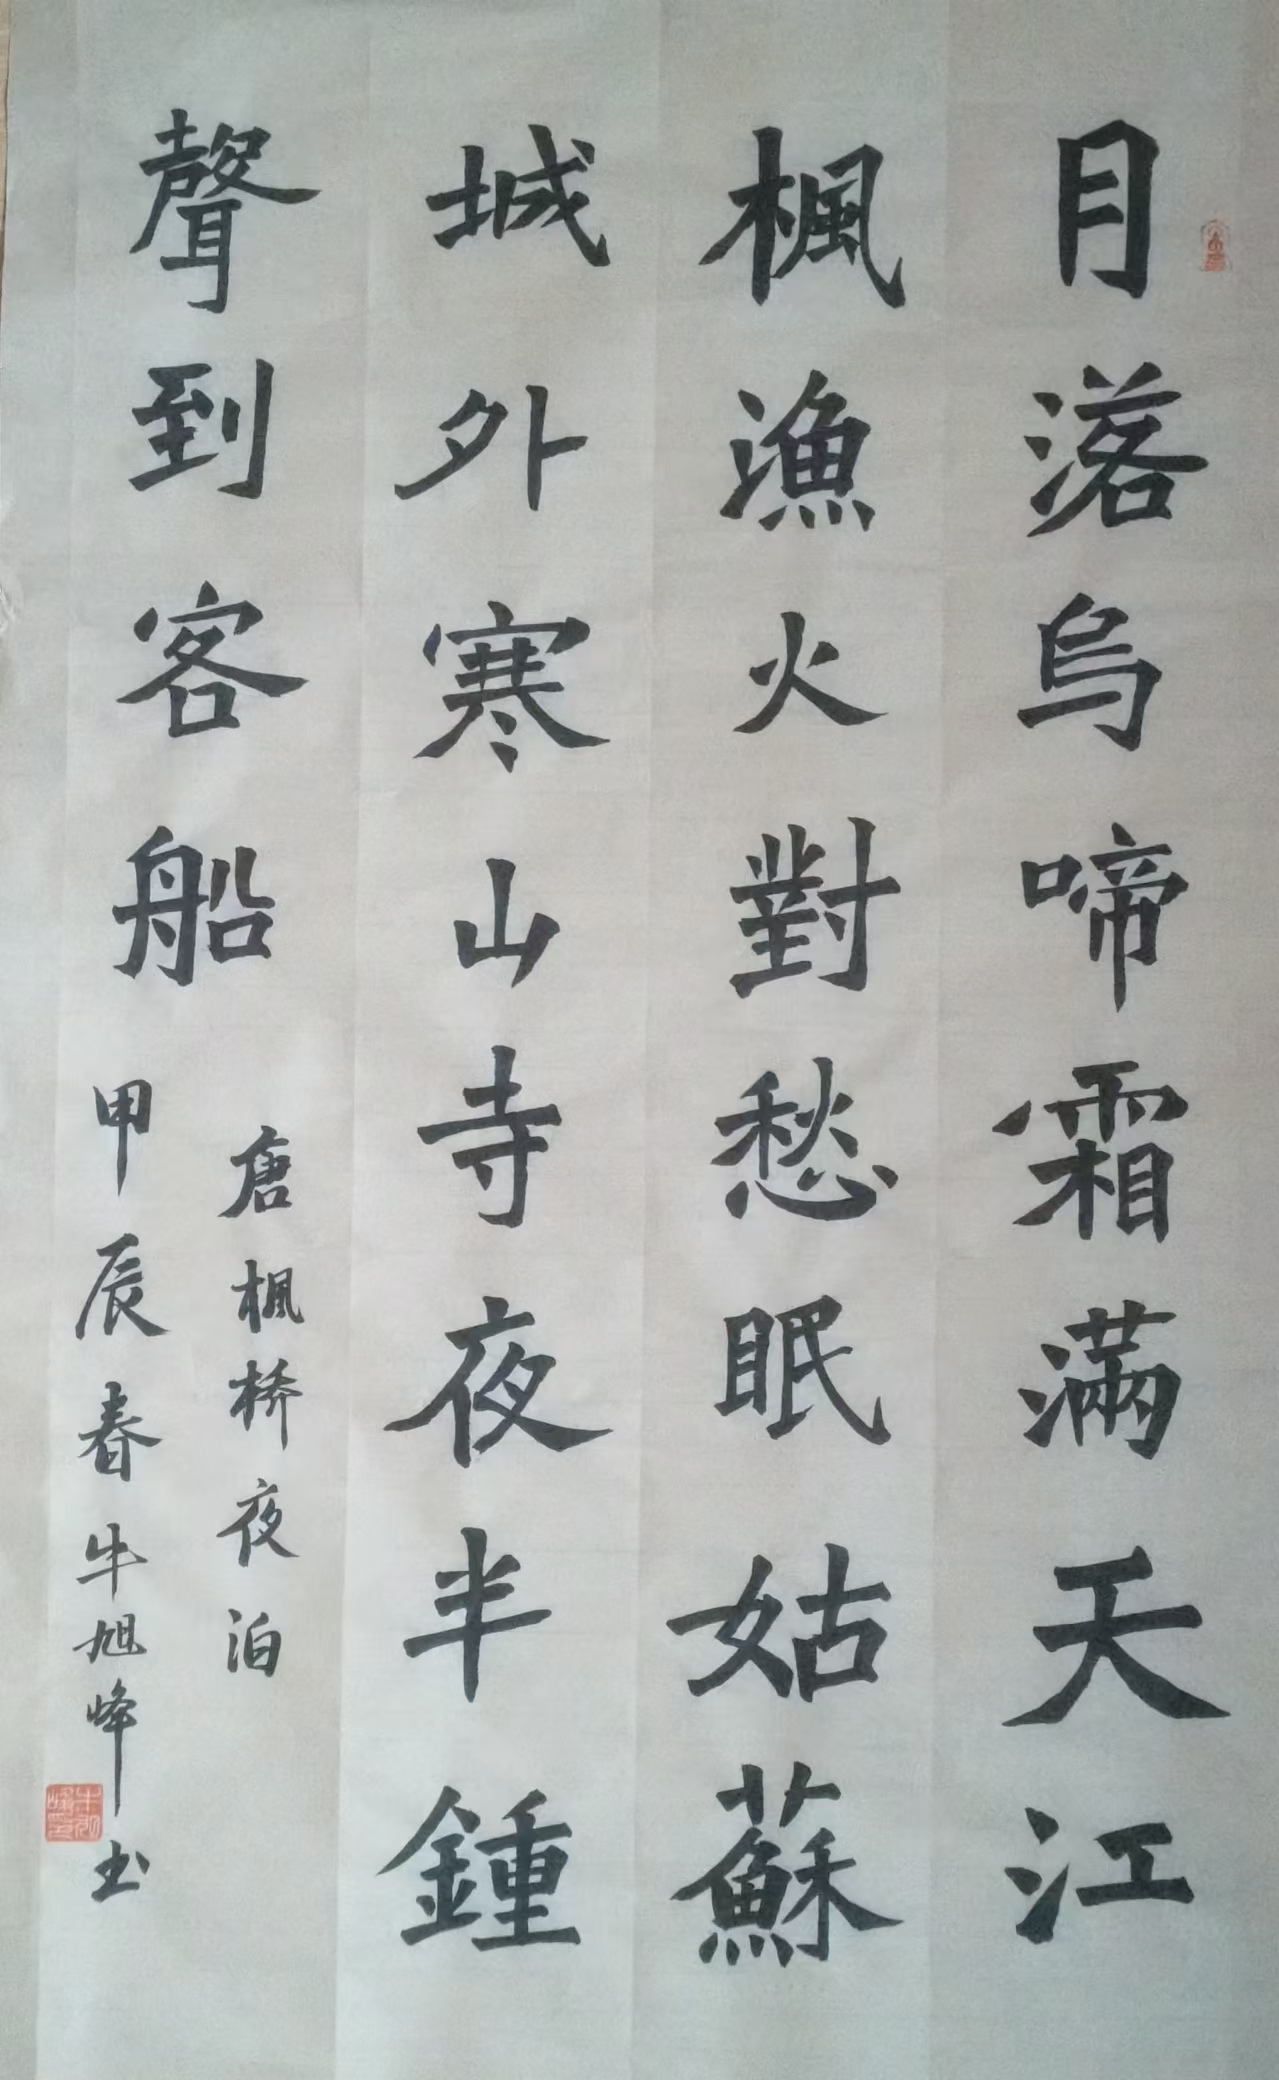 月落烏啼霜滿天江
楓漁火對愁眠姑蘇
城外寒山寺夜半鍾
聲到客船
唐楓橋夜泊
甲辰春牛旭峰书